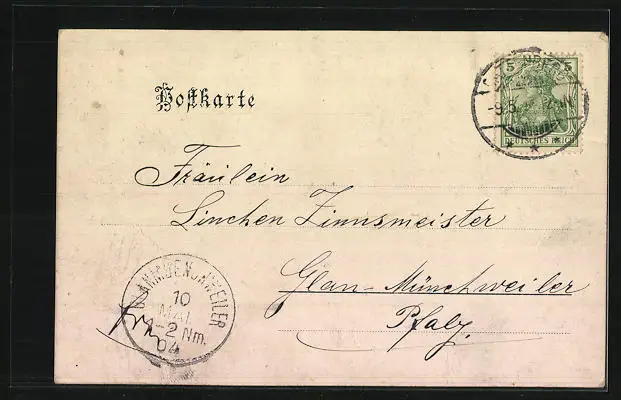 5 5
DEUTSCHES REICH
Postkarte
Fräulein
Linchen Zinnsmeister
Glan-Münchweiler
Pfalz
10
MAI
1-2 Nm.
04